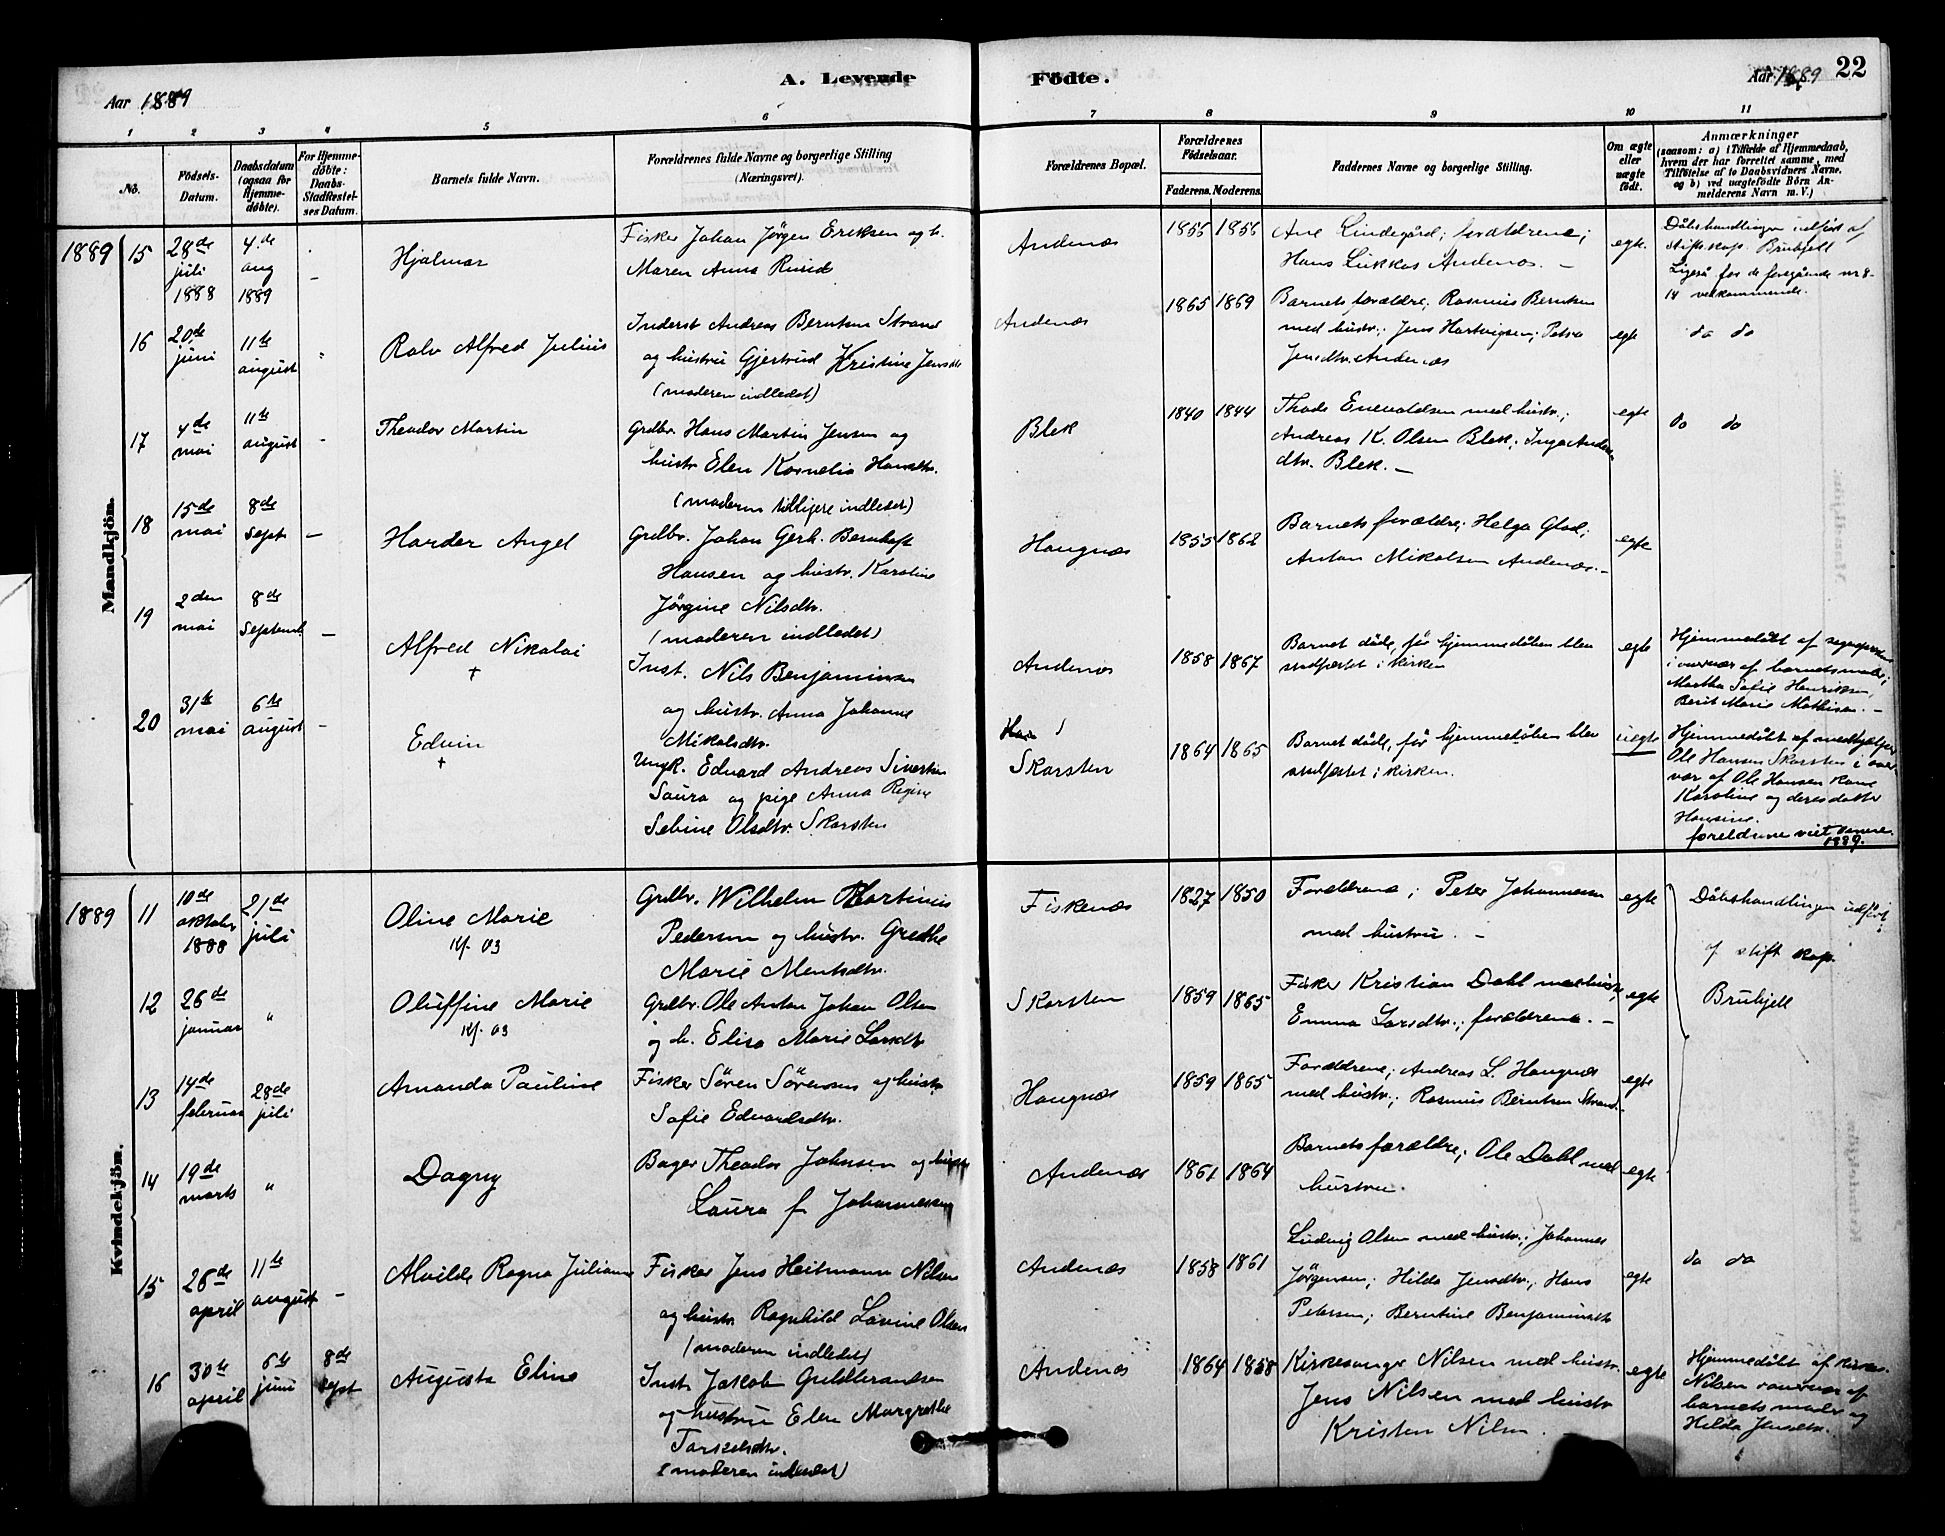 A. Levende Födte.
Aar 1889
Aar 1889 22
1 2 3 4 5 6 7 8 9 10 11
No.
Födsels-
Datum.
Daabsdatum
(ogsaa for
Hjemme-
døbte).
For Hjemme-
döbte:
Daabs-
Stadfæstel-
ses Datum.
Barnets fulde Navn.
Forældrenes fulde Navne og borgerlige Stilling
(Næringsvei).
Forældrenes Bopæl.
Forældrenes
Födselsaar.
Faderens. Moderens.
Faddernes Navne og borgerlige Stilling.
Om ægte
eller
uægte
födt.
Anmærkninger
(saasom: a) i Tilfælde af Hjemmedaab,
hvem der har forrettet samme, med
Tilföielse af to Daabsvidners Navne,
og b) ved uægtefödte Börn An-
melderens Navn m. V.)
Mandkjön.
1889 15 28de juli 1888
4de aug 1889
Hjalmar
Fisker Johan Jörgen Eriksen og h.
Maren Anna
Andenæs
1856
Ane Lindegård; forældrene;
Hans Lukkes Andenæs. —
egte.
Dåbshandlingen udført af
stiftskap. Brubjell
Ligeså for de foregående nr 8-
14 vedkommende.
16 20de juni
11te august
Rolv Alfred Julius
Inderst Andreas Berntsen Strand
og hustru Gjertrud Kristine Jensdtr
(moderen indledet)
Andenæs
1865 1869
Barnets forældre; Rasmus Berntsen
med hustr.; Jens Hartvigsen; Petra
Jensdtr. Andenæs
egte
do do
17 4de mai
11te august
Theodor Martin
Grdbr. Hans Martin Jensen og
hustr. Elen Kornelia Hansdtr.
(moderen tidligere indledet)
Blek
1840 1844
Thode Enevoldsen med hustr.;
Andreas K. Olsen Blek; Inga Anders-
dtr. Blek. —
egte
do do
18 15de mai
8de sept —
Harder Angel
Grdbr. Johan Gerh. Bernhoft
Hansen og hustr. Karoline
Jörgine Nilsdtr.
(moderen indledet)
Haugnæs
1855 1862
Barnets forældre; Helga Glad;
Anton Mikalsen Andenæs. —
egte
19 2den mai
8de Septemb —
Alfred Nikolai
†
Inst. Nils Benjaminsen
og hustr. Anna Johanne
Mikalsdtr.
Andenæs
1858 1867
Barnet døde, før hjemmedåben blev
stadfæstet i kirken
egte
Hjemmedøbt af
i overvær af barnets moder;
Martha Sofie Henriksen,
Berit Marie Mathisen. —
20 31te mai
6te august —
Edvin
†
Ungk. Edvard Andreas Sivertsen
Saura og pige Anna Regine
Sebine Olsdtr. Skarsten
Skarsten
1864 1865
Barnet døde, før hjemmedåben blev
stadfæstet i kirken.
uegte
Hjemmedøbt af
Ole Hansen Skarsten i over-
vær af Ole Hansens kone
Karoline og deres datter
Hansine.
foreldrene viet
1889.
Kvindekjön.
1889 11 10de oktober 1888
21de juli
Oline Marie
Grdbr. Wilhelm Martinus
Pedersen og hustr. Grethe
Marie Mentsdtr.
Fiskenæs
1827 1850
Forældrene; Peter Johannesen
med hustru. —
egte
Dåbshandlingen udført
af stift kap.
Brubjell
12 26de januar
"
Oluffine Marie
Grdbr. Ole Anton Johan Olsen
og h. Elisa Marie Larsdtr
Skarsten
1859 1865
Fisker Kristian Dahl med hustr;
Emma Larsdtr.; forældrene. —
egte
13 14de februar
28de juli
Amanda Pauline
Fisker Søren Sørensen og hustr
Sofie Edvardsdtr.
Haugnæs
1859 1865
Forældrene; Andreas L. Haugnæs
med hustr.; Rasmus Berntsen Strand. —
egte
14 19de marts
"
Dagny
Bager Theodor Johnsen og hustr
Laura f. Johannesen
Andenæs
1861 1864
Barnets forældre; Ole Dahl med
hustru.
egte
15 26de april
11te august —
Alvilde Ragna Juliane
Fisker Jens Heitmann Nilsen
og hustr. Ragnhild Lovine Olsen
(moderen indledet)
Andenæs
1858 1861
Ludvig Olsen med hustr.; Johannes
Jørgensen; Hilda Jensdtr.; Hans
Petersen; Berntine Benjaminsdtr
egte
do do
16 30te april
6te juni
8de sept
Augusta Eline
Inst. Jakob Guldbrandsen
og hustru Elen Margrethe
Torkelsdtr.
(moderen indledet)
Andenæs
1864 1858
Kirkesanger Nilsen med hustr.
Jens Nilsen med hustr
Kristen Nilsen. —
egte
Hjemmedøbt af kirkes.
Nilsen i overvær af
barnets moder og
Hilda Jensdtr.